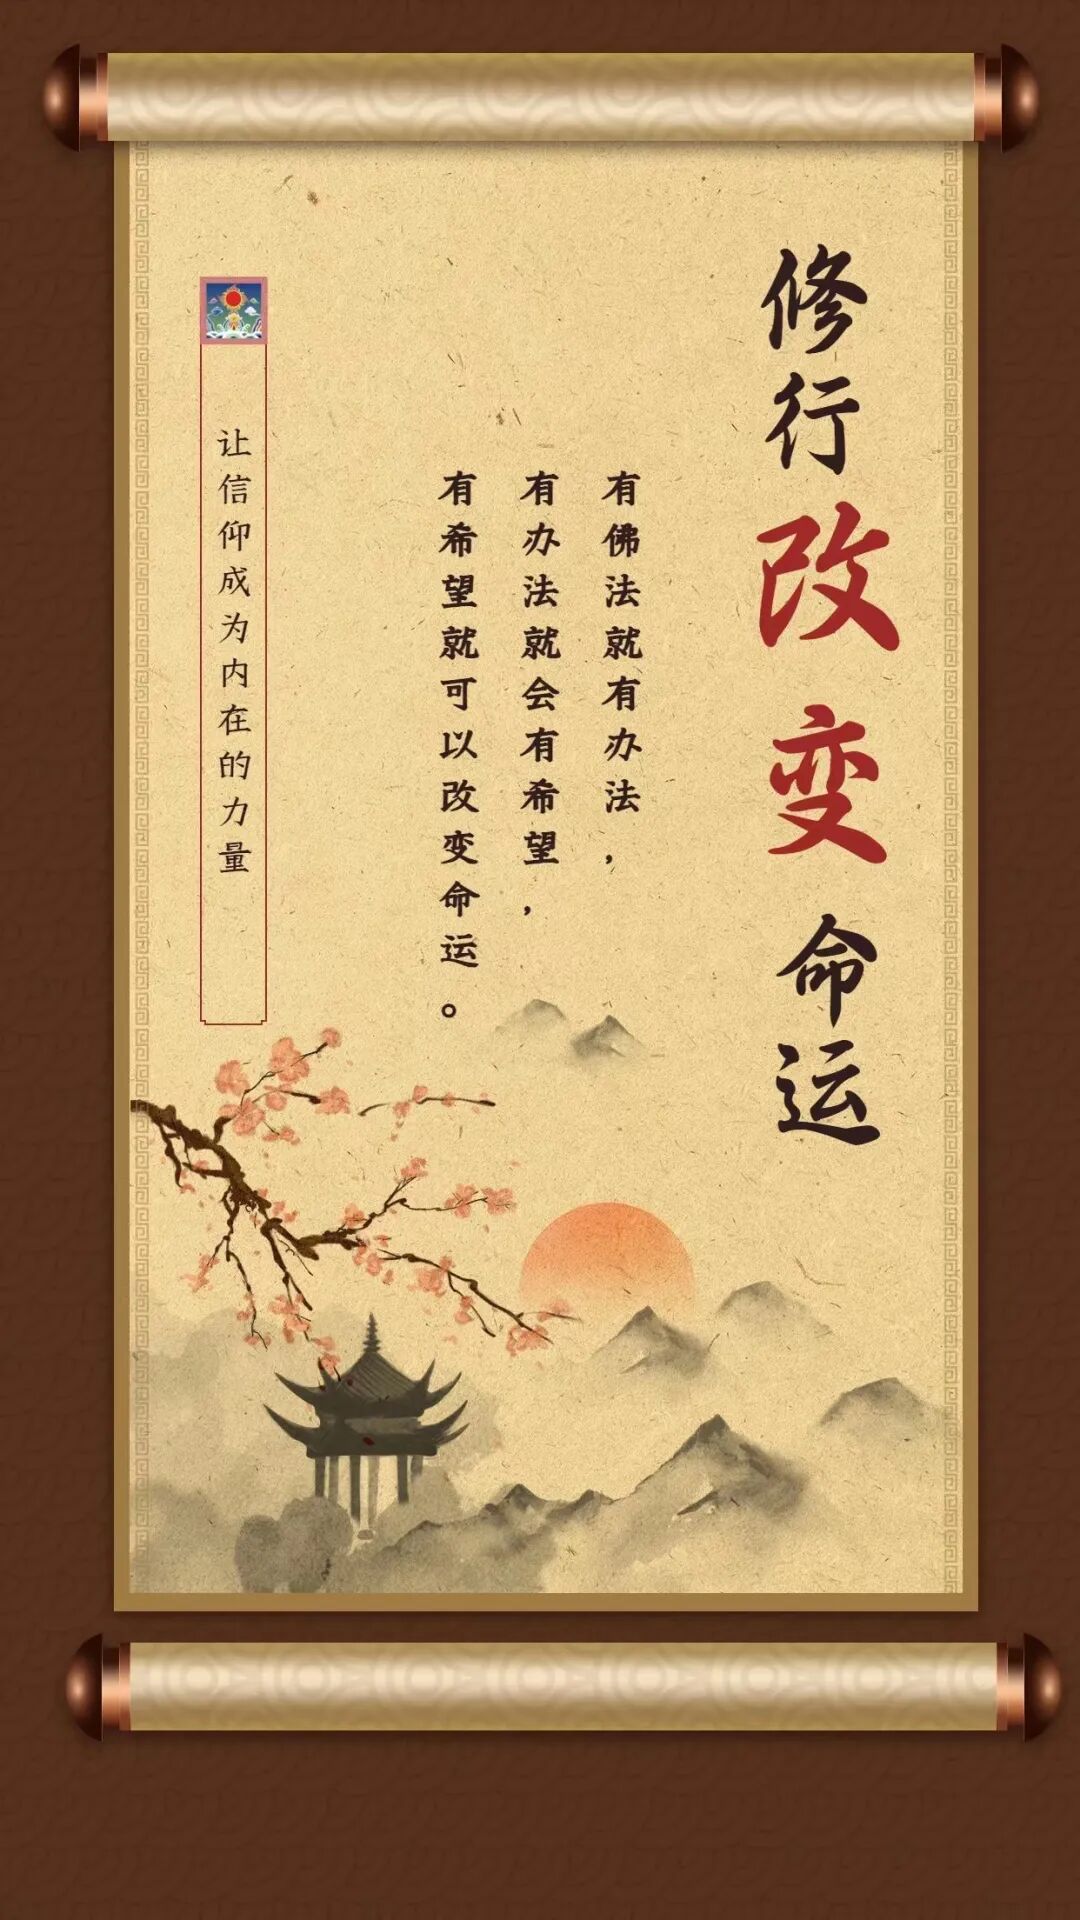 修行改变命运
有佛法就有办法，
有办法就会有希望，
有希望就可以改变命运。
让信仰成为内在的力量